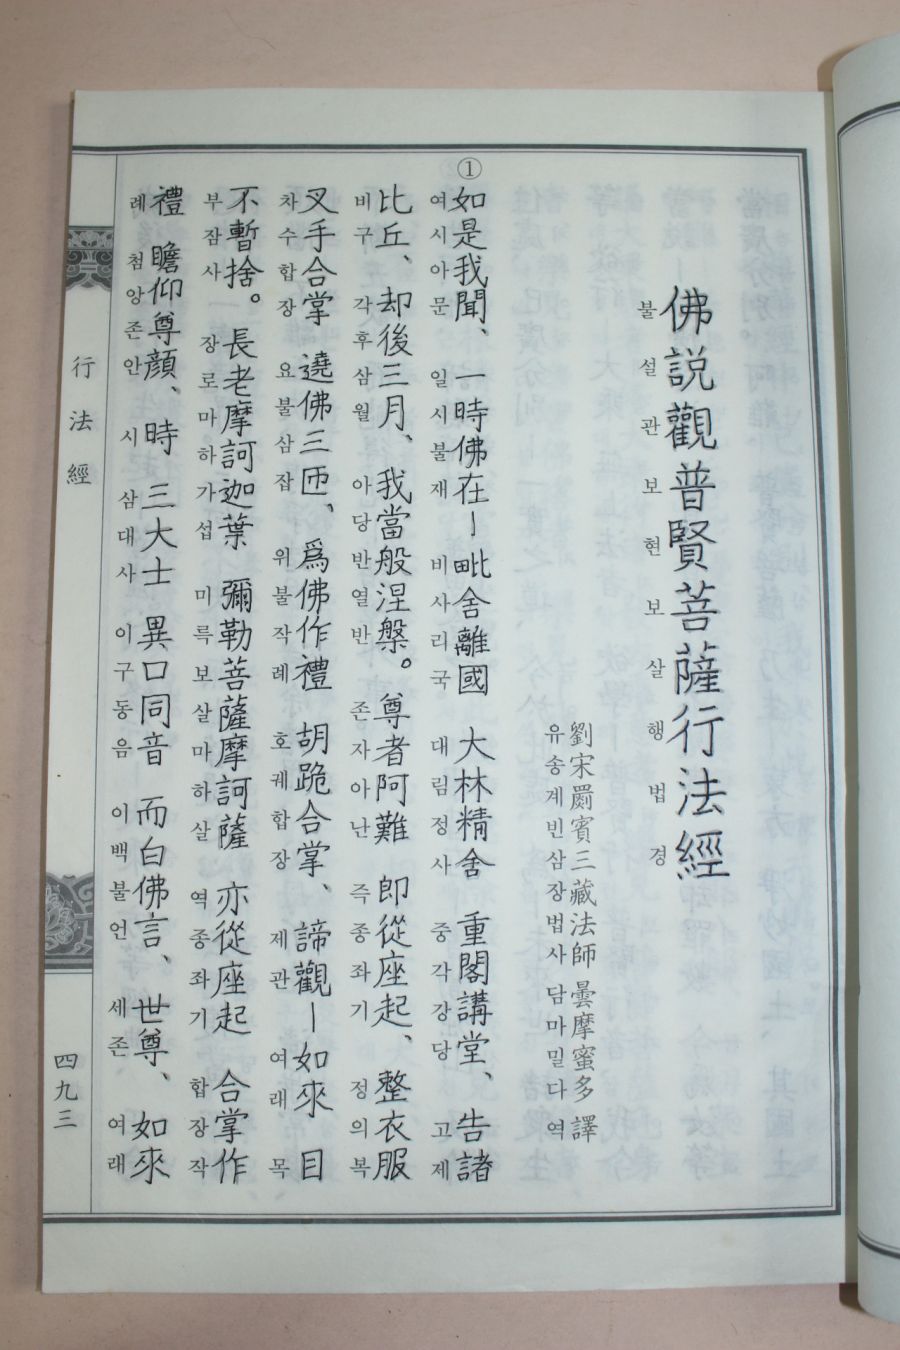 佛說觀普賢菩薩行法經
불설관보현보살행법경
劉宋罽賓三藏法師 曇摩蜜多 譯
유송계빈삼장법사 담마밀다 역
①
如是我聞、一時佛在ㅣ毗舍離國 大林精舍 重閣講堂、告諸
여시아문 일시불재 비사리국 대림정사 중각강당 고제
比丘、却後三月、我當般涅槃。尊者阿難 即從座起、整衣服
비구 각후삼월 아당반열반 존자아난 즉종좌기 정의복
叉手合掌 遶佛三匝、爲佛作禮 胡跪合掌、諦觀ㅣ如來 目
차수합장 요불삼잡 위불작례 호궤합장 제관 여래 목
不暫捨。長老摩訶迦葉 彌勒菩薩摩訶薩 亦從座起 合掌作
부잠사 장로마하가섭 미륵보살마하살 역종좌기 합장작
禮 瞻仰尊顔、時 三大士 異口同音 而白佛言、世尊、如來
례 첨앙존안 시 삼대사 이구동음 이백불언 세존 여래
行法經
四九三